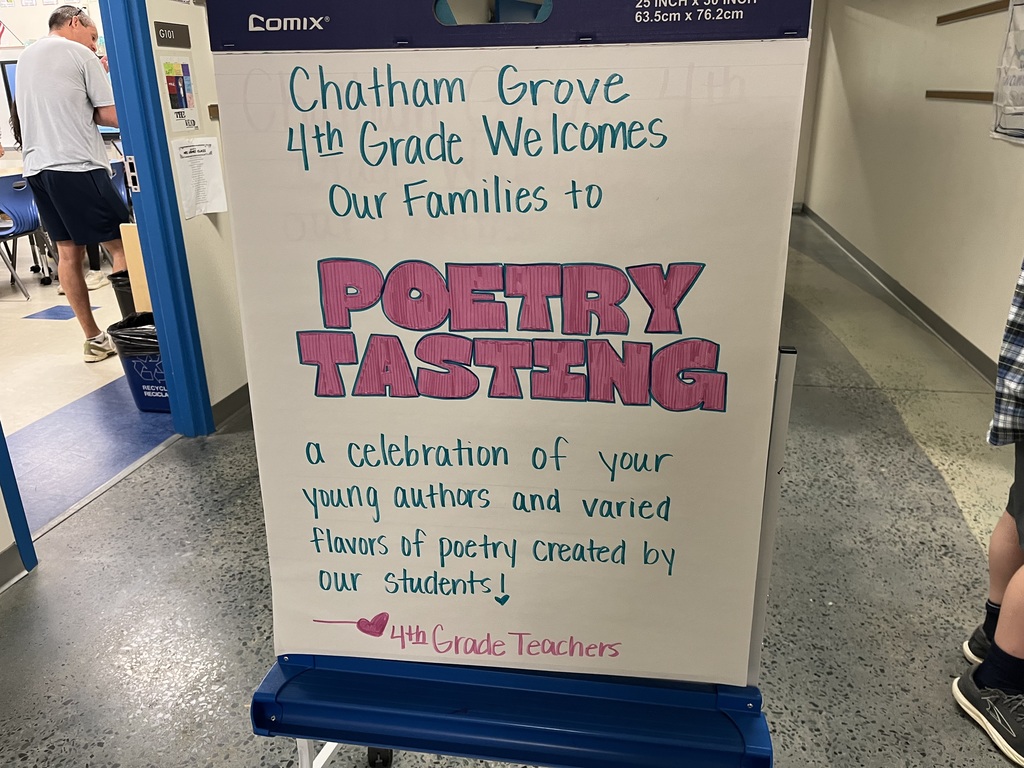 COMIX®
25 INCH x 30 INCH
63.5cm x 76.2cm
G101
Chatham Grove
4th Grade Welcomes
Our Families to
POETRY
TASTING
a celebration of your
young authors and varied
flavors of poetry created by
our students!
4th Grade Teachers